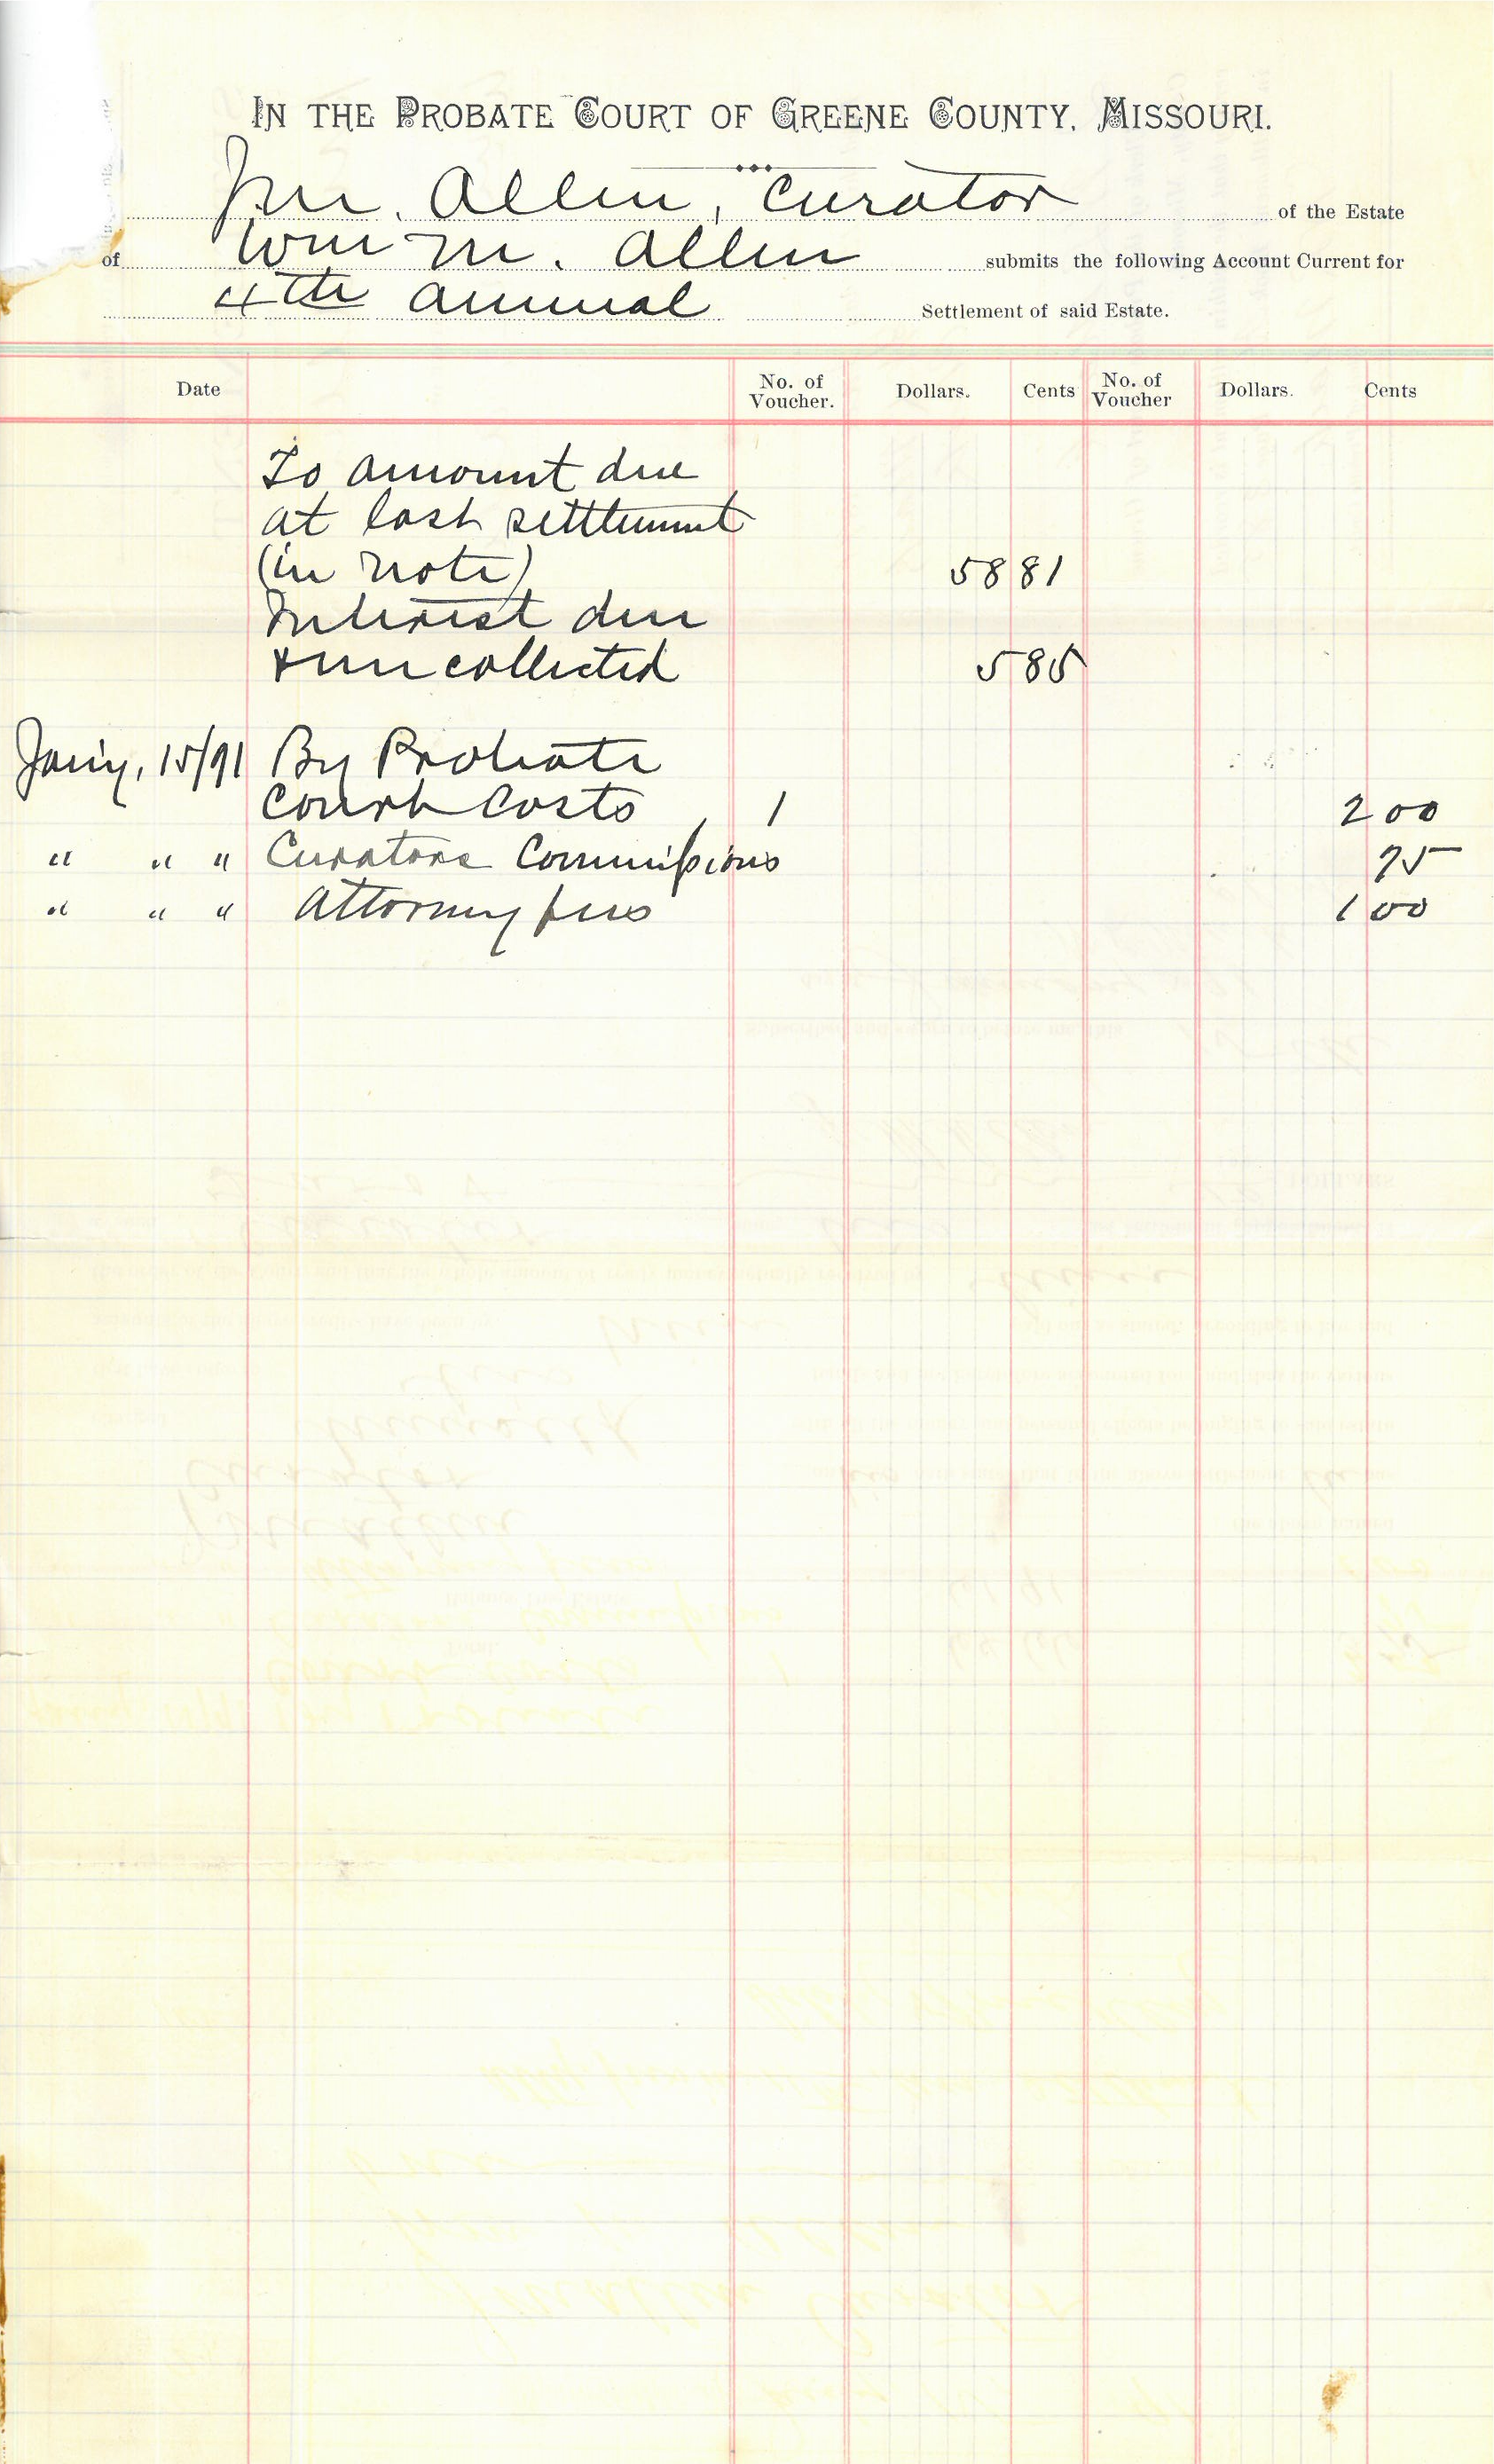 IN THE PROBATE COURT OF GREENE COUNTY, MISSOURI.
J.M. Allen, Curator of the Estate
of Wm M. Allen submits the following Account Current for
4th annual Settlement of said Estate.
Date No. of Voucher. Dollars. Cents No. of Voucher Dollars. Cents
To amount due
at last settlement
(in note) 58 81
Interest due
& uncollected 5 85
Jany, 15/91 By Probate
Court Costs 1 2 00
" " " Curators Commissions 75
" " " Attorney fees 1 00